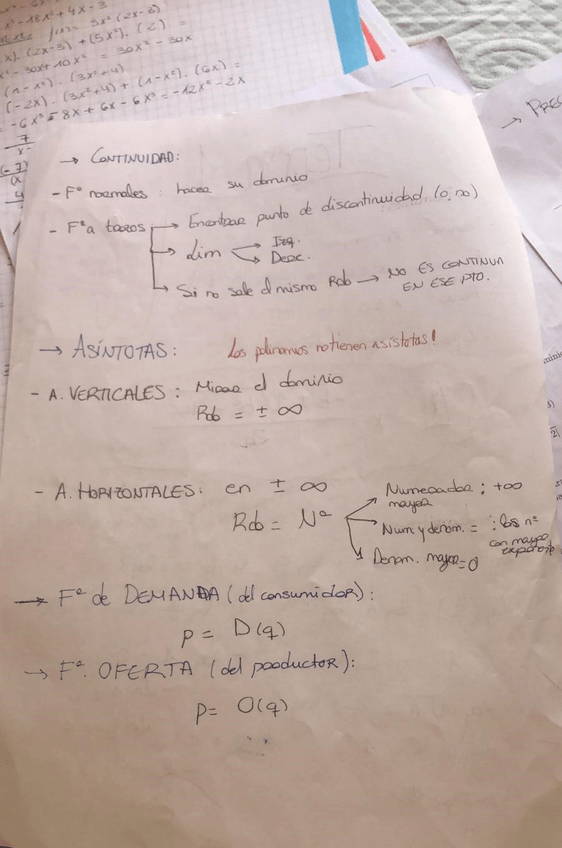 x² - 18x² + 4x - 3
5x² · (2x - 3)
x) · (2x-3) + (5x²) · (2) =
x² - 30x + 10x² = 30x² - 30x
(1 - x²) · (3x² + 4)
(-2x) · (3x² + 4) + (1 - x²) · (6x) =
= -6x³ - 8x + 6x - 6x³ = -12x³ - 2x
7
→ PRES
→ CONTINUIDAD:
- Fº normales: hacer su dominio
- Fº a trozos → Encontrar punto de discontinuidad (0, no)
→ Lim → Izq.
→ Derc.
→ Si no sale el mismo Rdo → NO ES CONTINUA
EN ESE PTO.
→ ASÍNTOTAS: Los polinomios no tienen asíntotas!
- A. VERTICALES: Mirar el dominio
Rdo = ± ∞
- A. HORIZONTALES: en ± ∞
Rdo = Nº
Numerador mayor: +∞
Num y denom. = : los nº con mayor exponente
Denom. mayor = 0
→ Fº de DEMANDA (del consumidor):
p = D(q)
→ Fº. OFERTA (del productor):
p = O(q)